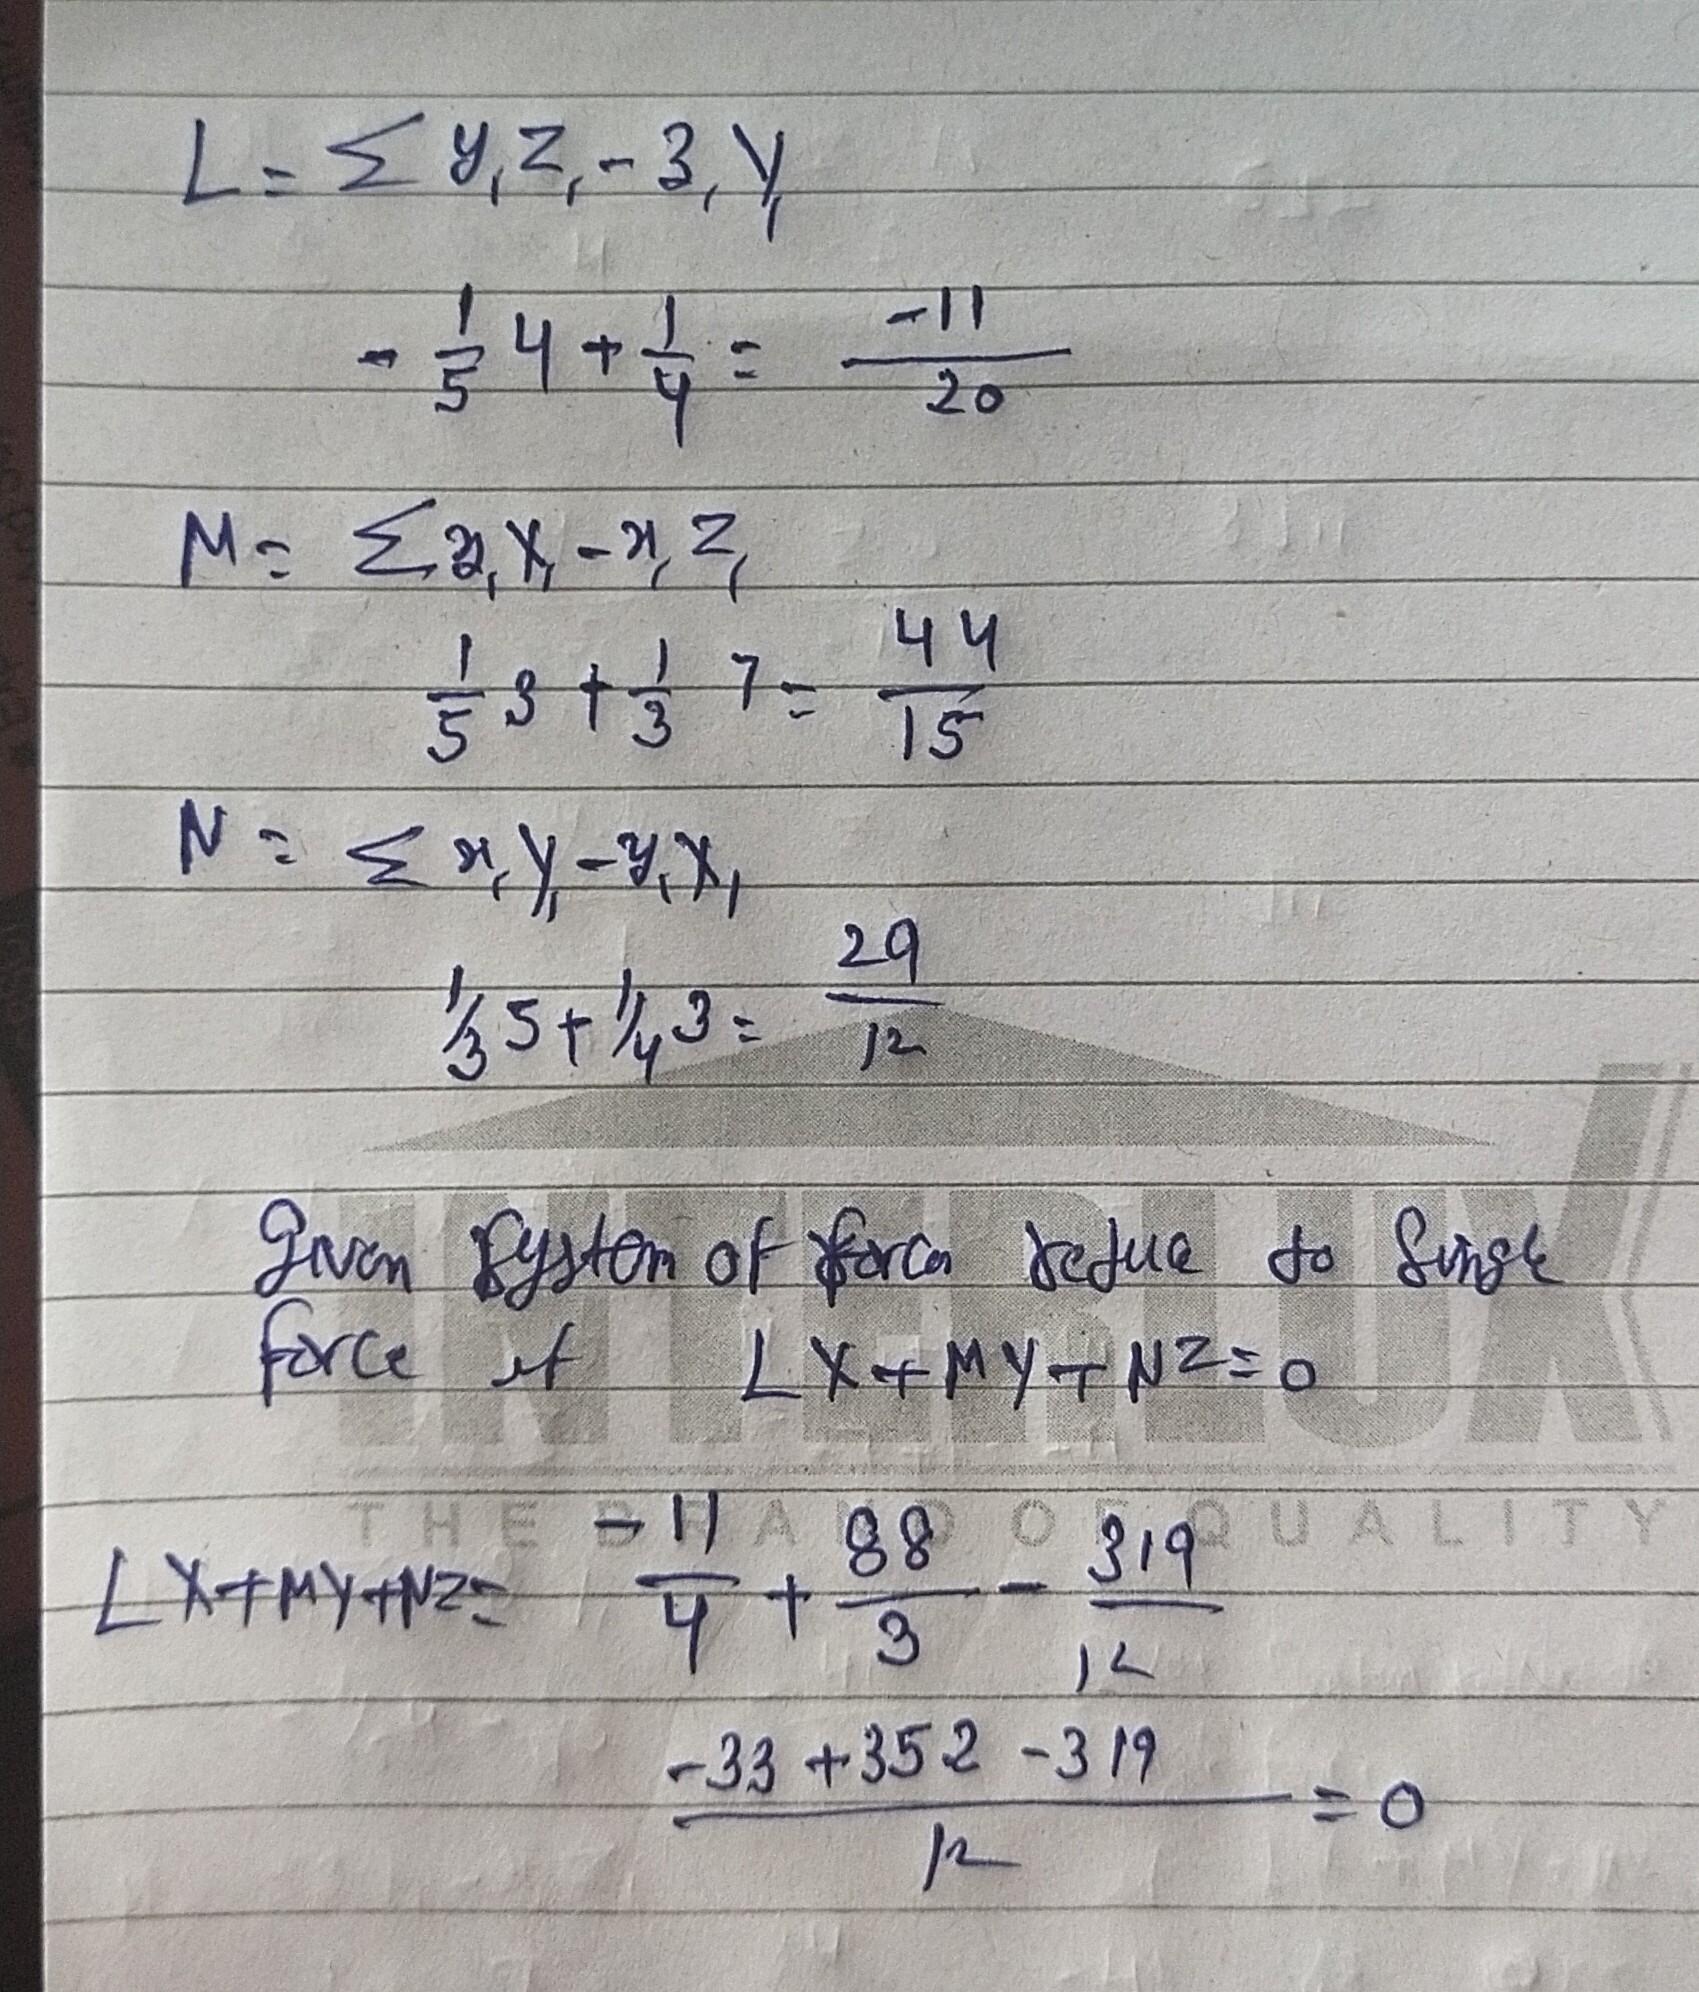 L = Σ y₁Z₁ - z₁Y₁
- 1/5 4 + 1/4 = -11/20
M = Σ z₁X₁ - x₁Z₁
1/5 3 + 1/3 7 = 44/15
N = Σ x₁Y₁ - y₁X₁
1/3 5 + 1/4 3 = 29/12
Given System of force reduce to Single
force if LX + MY + NZ = 0
INTERLUX
THE BRAND OF QUALITY
LX + MY + NZ = -11/4 + 88/3 - 319/12
-33 + 352 - 319 / 12 = 0